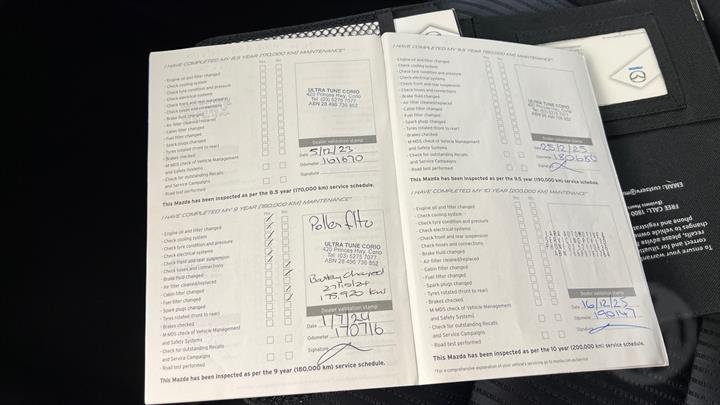 I HAVE COMPLETED MY 8.5 YEAR (170,000 KM) MAINTENANCE*
Yes No
- Engine oil and filter changed
- Check cooling system
- Check tyre condition and pressure
- Check electrical systems
- Check front and rear suspension
- Check hoses and connections
- Brake fluid changed
- Air filter cleaned/replaced
- Cabin filter changed
- Fuel filter changed
- Spark plugs changed
- Tyres rotated (front to rear)
- Brakes checked
- M-MDS check of Vehicle Management
and Safety Systems
- Check for outstanding Recalls
and Service Campaigns
- Road test performed
ULTRA TUNE CORIO
420 Princes Hwy, Corio
Tel: (03) 5275 7077
ABN 28 496 736 852
Dealer validation stamp
Date 5/12/23
Odometer 161670
Signature
This Mazda has been inspected as per the 8.5 year (170,000 km) service schedule.
I HAVE COMPLETED MY 9 YEAR (180,000 KM) MAINTENANCE*
Yes No
- Engine oil and filter changed
- Check cooling system
- Check tyre condition and pressure
- Check electrical systems
- Check front and rear suspension
- Check hoses and connections
- Brake fluid changed
- Air filter cleaned/replaced
- Cabin filter changed
- Fuel filter changed
- Spark plugs changed
- Tyres rotated (front to rear)
- Brakes checked
- M-MDS check of Vehicle Management
and Safety Systems
- Check for outstanding Recalls
and Service Campaigns
- Road test performed
ULTRA TUNE CORIO
420 Princes Hwy, Corio
Tel: (03) 5275 7077
ABN 28 496 736 852
Battery Changed
175,920 km
Dealer validation stamp
Date 1/7/24
Odometer 170716
Signature
This Mazda has been inspected as per the 9 year (180,000 km) service schedule.
I HAVE COMPLETED MY 9.5 YEAR (190,000 KM) MAINTENANCE*
Yes No
- Engine oil and filter changed
- Check cooling system
- Check tyre condition and pressure
- Check electrical systems
- Check front and rear suspension
- Check hoses and connections
- Brake fluid changed
- Air filter cleaned/replaced
- Cabin filter changed
- Fuel filter changed
- Spark plugs changed
- Tyres rotated (front to rear)
- Brakes checked
- M-MDS check of Vehicle Management
and Safety Systems
- Check for outstanding Recalls
and Service Campaigns
- Road test performed
ULTRA TUNE CORIO
420 Princes Hwy, Corio
Tel: (03) 5275 7077
ABN 28 496 736 852
Dealer validation stamp
Date
Odometer 180680
Signature
This Mazda has been inspected as per the 9.5 year (190,000 km) service schedule.
I HAVE COMPLETED MY 10 YEAR (200,000 KM) MAINTENANCE*
Yes No
- Engine oil and filter changed
- Check cooling system
- Check tyre condition and pressure
- Check electrical systems
- Check front and rear suspension
- Check hoses and connections
- Brake fluid changed
- Air filter cleaned/replaced
- Cabin filter changed
- Fuel filter changed
- Spark plugs changed
- Tyres rotated (front to rear)
- Brakes checked
- M-MDS check of Vehicle Management
and Safety Systems
- Check for outstanding Recalls
and Service Campaigns
- Road test performed
Dealer validation stamp
Date 16/12/25
Odometer 190147
Signature
This Mazda has been inspected as per the 10 year (200,000 km) service schedule.
*For a comprehensive explanation of your vehicle's servicing go to mazda.com.au/service
FREE CALL: 1800